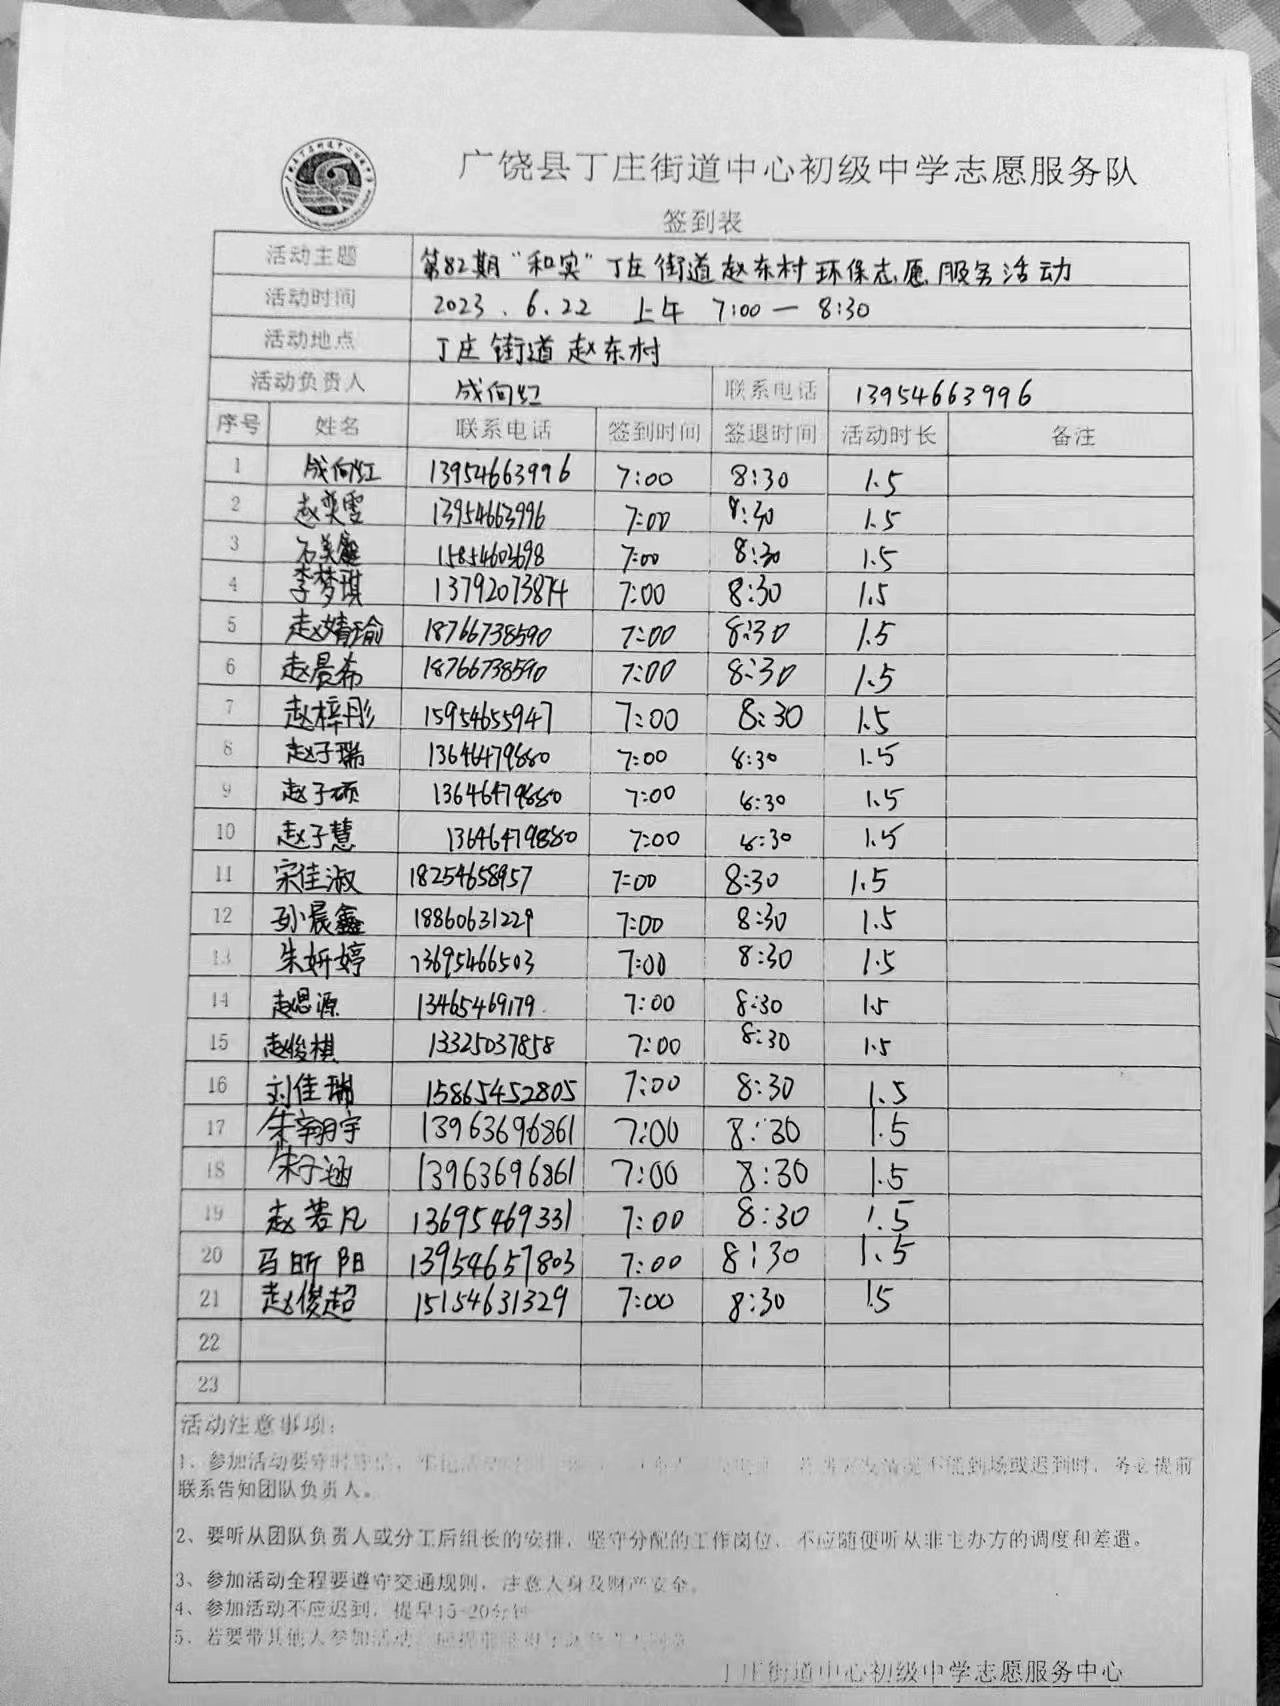 广饶县丁庄街道中心初级中学志愿服务队
签到表
活动主题 第82期“和实”丁庄街道赵东村环保志愿服务活动
活动时间 2023.6.22 上午 7:00—8:30
活动地点 丁庄街道赵东村
活动负责人 成向红 联系电话 13954663996
序号 姓名 联系电话 签到时间 签退时间 活动时长 备注
1 成向红 13954663996 7:00 8:30 1.5
2 赵奕雪 13954663996 7:00 8:30 1.5
3 石美鑫 15854603698 7:00 8:30 1.5
4 李梦琪 13792073874 7:00 8:30 1.5
5 赵婧瑜 18766738590 7:00 8:30 1.5
6 赵晨希 18766738590 7:00 8:30 1.5
7 赵梓彤 15954655947 7:00 8:30 1.5
8 赵子瑞 13646479880 7:00 8:30 1.5
9 赵子硕 13646479880 7:00 8:30 1.5
10 赵子慧 13646479880 7:00 8:30 1.5
11 宋佳淑 18254658957 7:00 8:30 1.5
12 孙晨鑫 18860631229 7:00 8:30 1.5
13 朱妍婷 13695466503 7:00 8:30 1.5
14 赵思源 13465469179 7:00 8:30 1.5
15 赵俊棋 13325037858 7:00 8:30 1.5
16 刘佳瑞 15865452805 7:00 8:30 1.5
17 朱翱宇 13963696861 7:00 8:30 1.5
18 朱子涵 13963696861 7:00 8:30 1.5
19 赵若凡 13695469331 7:00 8:30 1.5
20 马昕阳 13954657803 7:00 8:30 1.5
21 赵俊超 15154631329 7:00 8:30 1.5
22
23
活动注意事项:
1、参加活动要守时 不能到场或迟到时,务必提前
联系告知团队负责人。
2、要听从团队负责人或分工后组长的安排,坚守分配的工作岗位,不应随便听从非主办方的调度和差遣。
3、参加活动全程要遵守交通规则,注意人身及财产安全。
4、参加活动不应迟到,提早15-20分钟
5、若要带其他人参加活动,
丁庄街道中心初级中学志愿服务中心